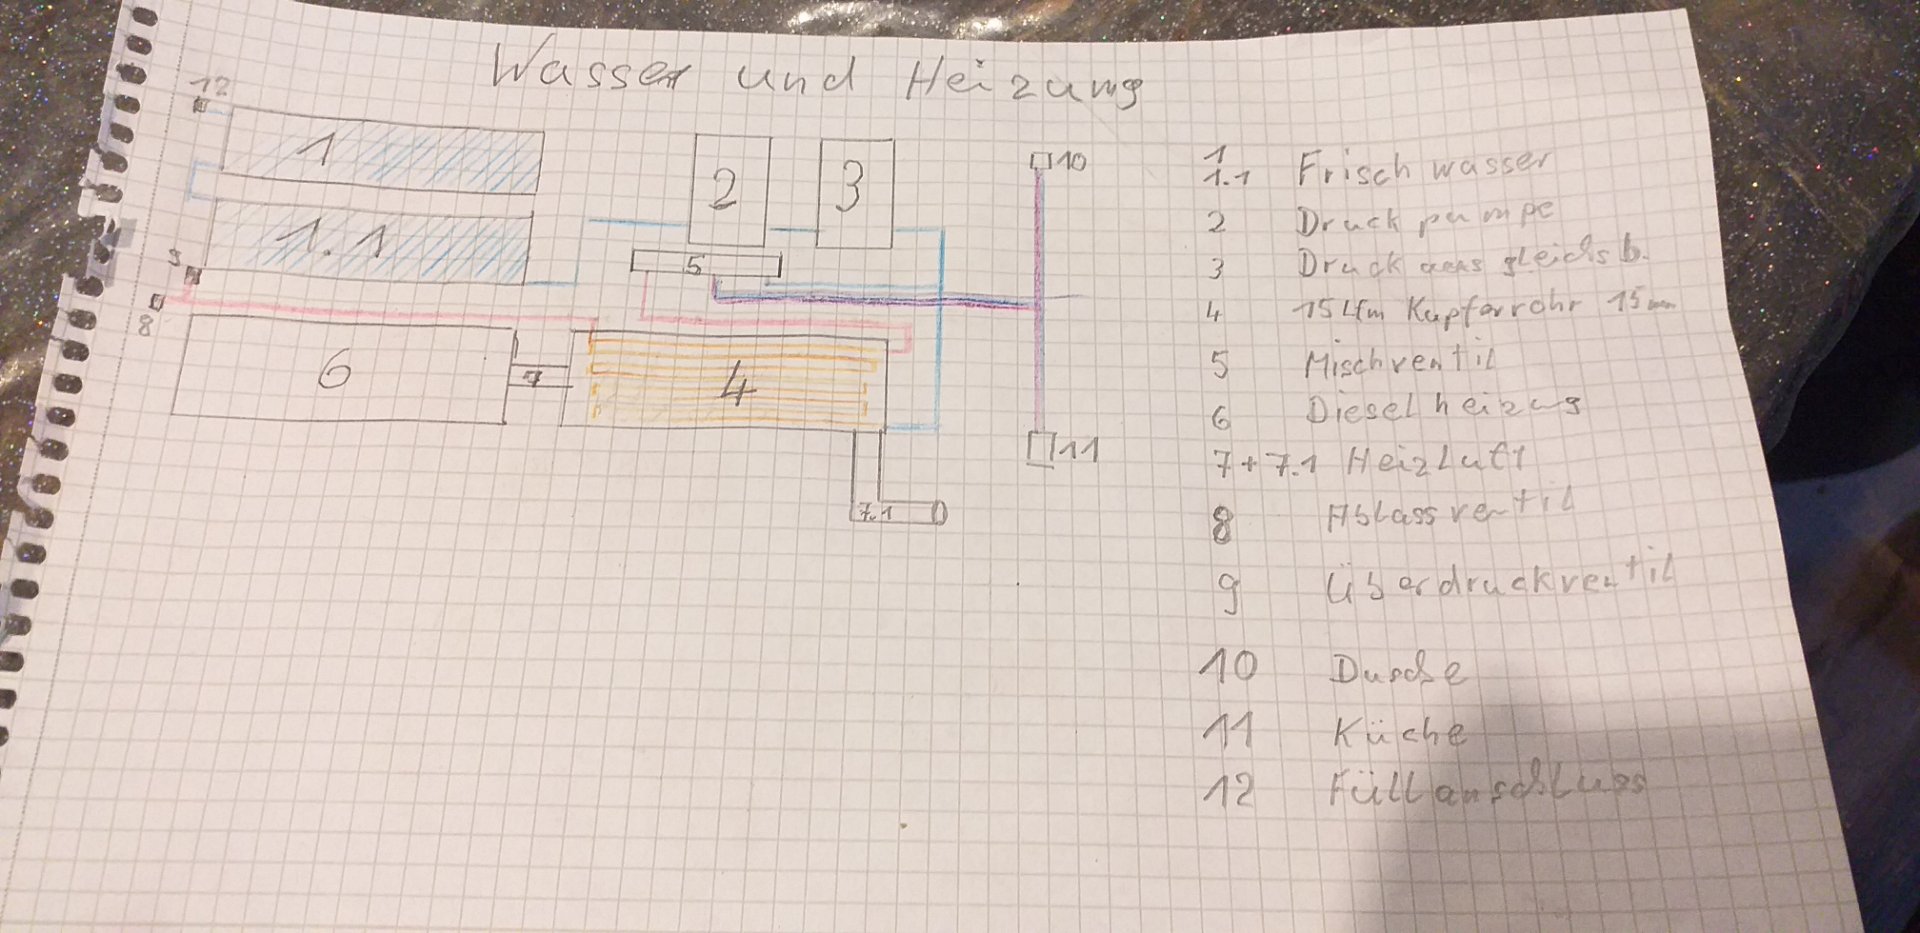 Wasser und Heizung
12
1
1.1
2
3
5
9
8
6
7
4
7.1
10
11
1
1.1 Frischwasser
2 Druckpumpe
3 Druckausgleichsb.
4 15 Lfm Kupferrohr 15mm
5 Mischventil
6 Dieselheizung
7+7.1 HeizLuft
8 Ablassventil
9 Überdruckventil
10 Dusche
11 Küche
12 Füllanschluss